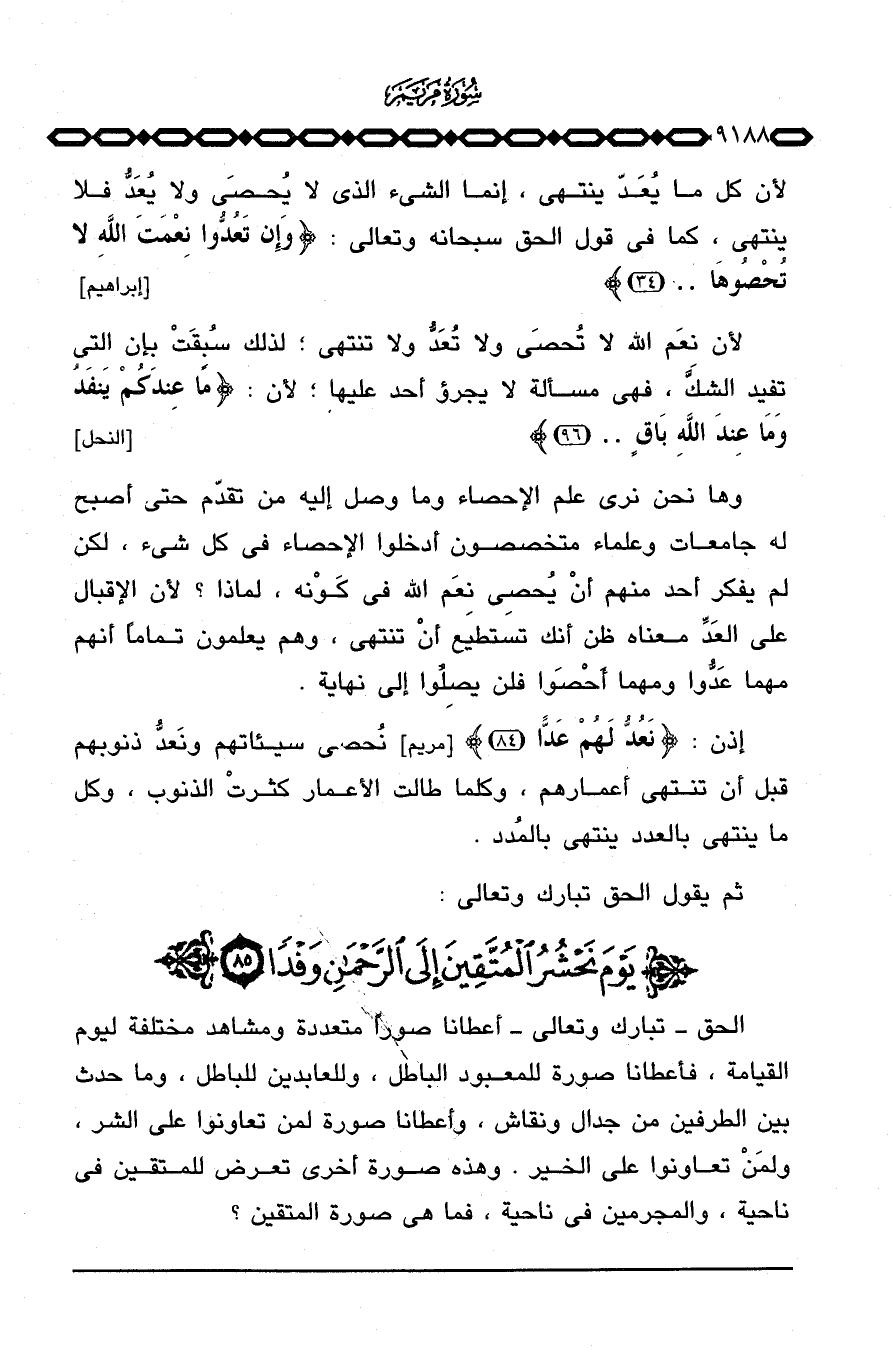 سُورَةُ مَرْيَم
٩١٨٨
لأن كل ما يُعَدّ ينتهى ، إنما الشىء الذى لا يُحصَى ولا يُعَدُّ فلا
ينتهى ، كما فى قول الحق سبحانه وتعالى : ﴿وَإِن تَعُدُّوا نِعْمَتَ اللَّهِ لا
تُحْصُوهَا .. (٣٤)﴾ [إبراهيم]
لأن نِعَم الله لا تُحصَى ولا تُعَدُّ ولا تنتهى ؛ لذلك سُبِقَتْ بإن التى
تفيد الشكَّ ، فهى مسألة لا يجرؤ أحد عليها ؛ لأن : ﴿مَا عِندَكُمْ يَنفَدُ
وَمَا عِندَ اللَّهِ بَاقٍ .. (٩٦)﴾ [النحل]
وها نحن نرى علم الإحصاء وما وصل إليه من تقدّم حتى أصبح
له جامعات وعلماء متخصصون أدخلوا الإحصاء فى كل شىء ، لكن
لم يفكر أحد منهم أنْ يُحصِى نِعَم الله فى كَوْنه ، لماذا ؟ لأن الإقبال
على العَدِّ معناه ظن أنك تستطيع أنْ تنتهى ، وهم يعلمون تماماً أنهم
مهما عَدُّوا ومهما أَحْصَوا فلن يصلُوا إلى نهاية .
إذن : ﴿نَعُدُّ لَهُمْ عَدًّا (٨٤)﴾ [مريم] نُحصى سيئاتهم ونَعدُّ ذنوبهم
قبل أن تنتهى أعمارهم ، وكلما طالت الأعمار كثرتْ الذنوب ، وكل
ما ينتهى بالعدد ينتهى بالمُدد .
ثم يقول الحق تبارك وتعالى :
﴿يَوْمَ نَحْشُرُ ٱلْمُتَّقِينَ إِلَى ٱلرَّحْمَٰنِ وَفْدًا ٨٥﴾
الحق - تبارك وتعالى - أعطانا صوراً متعددة ومشاهد مختلفة ليوم
القيامة ، فأعطانا صورة للمعبود الباطل ، وللعابدين للباطل ، وما حدث
بين الطرفين من جدال ونقاش ، وأعطانا صورة لمن تعاونوا على الشر ،
ولمَنْ تعاونوا على الخير . وهذه صورة أخرى تعرض للمتقين فى
ناحية ، والمجرمين فى ناحية ، فما هى صورة المتقين ؟